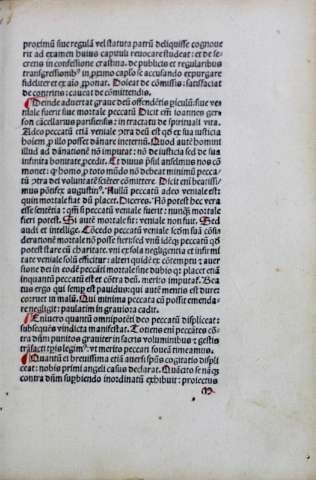 proximū siue regulā vel statuta patrū deliquisse cognoue
rit ad examen huius capituli reuocare studeat: et de se
cretis in confessione crastina. de publicis et regularibus
transgressionib⁹ in ꝓximo caplo se accusando expurgare
fideliter et ex aīo ꝓponat. Doleat de cōmissis: satisfaciat
de contritis: caueat de cōmittendis.
Deinde aduertat graue deū offendētis piculū siue ve
niale fuerit siue mortale peccatū Dicit em̄ ioannes ger
son cācellarius parisiensis: in tractatu de spirituali vita.
Adeo peccatū etiā veniale ꝯtra deū est qđ ex sua iusticia
hoīem ꝓ illo posset dānare ineternū. Quod autē homini
illud ad dānationē nō imputat: nō de iusticia sed de sua
infinita bonitate ꝓcedit. Et diuus ipsul anselmus nos cō
monet: ꝙ homo ꝓ toto mūdo nō debeat minimū pecca
tū ꝯtra dei voluntatē sciēter cōmittere Dicit em̄ beatissi⸗
mus pōtifex augustin⁹. Nullū peccatū adeo veniale est
quin mortale fiat dū placet. Diceres. Nō potest hec vera
esse sentētia: qm̄ si peccatū veniale fuerit: nunqͣ mortale
fieri potest. Si autē mortale fit: veniale non fuit. Sed
audi et intellige. Cōcedo peccatū veniale scdm̄ suā cōsi
derationē mortale nō posse fieri sed vnū idēqͣ peccatū qđ
potest stare cū charitate. vni ex sola negligentia et infirmi
tate veniale solū efficitur: alteri quidē ex cōtemptu et auer
sione dei in codē peccāti mortale sine dubio qͣ placet etiā
inquantū peccatū est et cōtra deū. merito imputat̄. Bea
tus ergo qui semp est pauidus: qui autē mentis est dure
corruet in malū. Qui minima peccata cū possit emenda⸗
re negligit: paulatim in grauiora cadit.
Enimero quantū omnipotēti deo peccatū displiceat:
subsequēs vindicta manifestat. Totiens em̄ peccātes cō
tra dn̄m punitos grauiter in sacris voluminibus et gestis
trāsacti tꝑis legim⁹. vt merito peccati foueā timeamus.
Quantū ei breuissima etiā aduersi spūs cogitatio displi
ceat: nobis primi angeli casus declarat. Quācito se nāqͣ
contra dn̄m supbiendo inordinatū exhibuit: proiectus